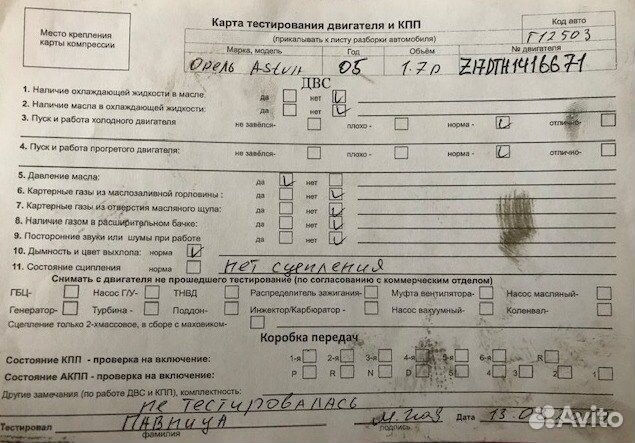 Место крепления
карты компрессии
Карта тестирования двигателя и КПП
(прикалывать к листу разборки автомобиля)
Код авто
Г12503
Марка, модель Год Объём № двигателя
Опель Astra 05 1.7D Z17DTH1416671
ДВС
1. Наличие охлаждающей жидкости в масле. да нет
2. Наличие масла в охлаждающей жидкости: да нет
3. Пуск и работа холодного двигателя не завёлся- плохо - норма - отлично-
4. Пуск и работа прогретого двигателя: не завёлся- плохо - норма - отлично-
5. Давление масла: да нет
6. Картерные газы из маслозаливной горловины : да нет
7. Картерные газы из отверстия масляного щупа: да нет
8. Наличие газом в расширительном бачке: да нет
9. Посторонние звуки или шумы при работе да нет
10. Дымность и цвет выхлопа: норма
11. Состояние сцепления норма нет сцепления
Снимать с двигателя не прошедшего тестирование (по согласованию с коммерческим отделом)
ГБЦ- Насос Г/У- ТНВД Распределитель зажигания- Муфта вентилятора- Насос масляный-
Генератор- Турбина - Поддон- Инжектор/Карбюратор - Насос вакуумный- Коленвал-
Сцепление только 2-хмассовое, в сборе с маховиком-
Коробка передач
Состояние КПП - проверка на включение: 1-я 2-я 3-я 4-я 5-я 6-я R
Состояние АКПП - проверка на включение: P R N D 4 3 2 1
Другие замечания (по работе ДВС и КПП), комплектность:
не тестировалась
Тестировал Павница Дата 13.0
фамилия подпись
Avito